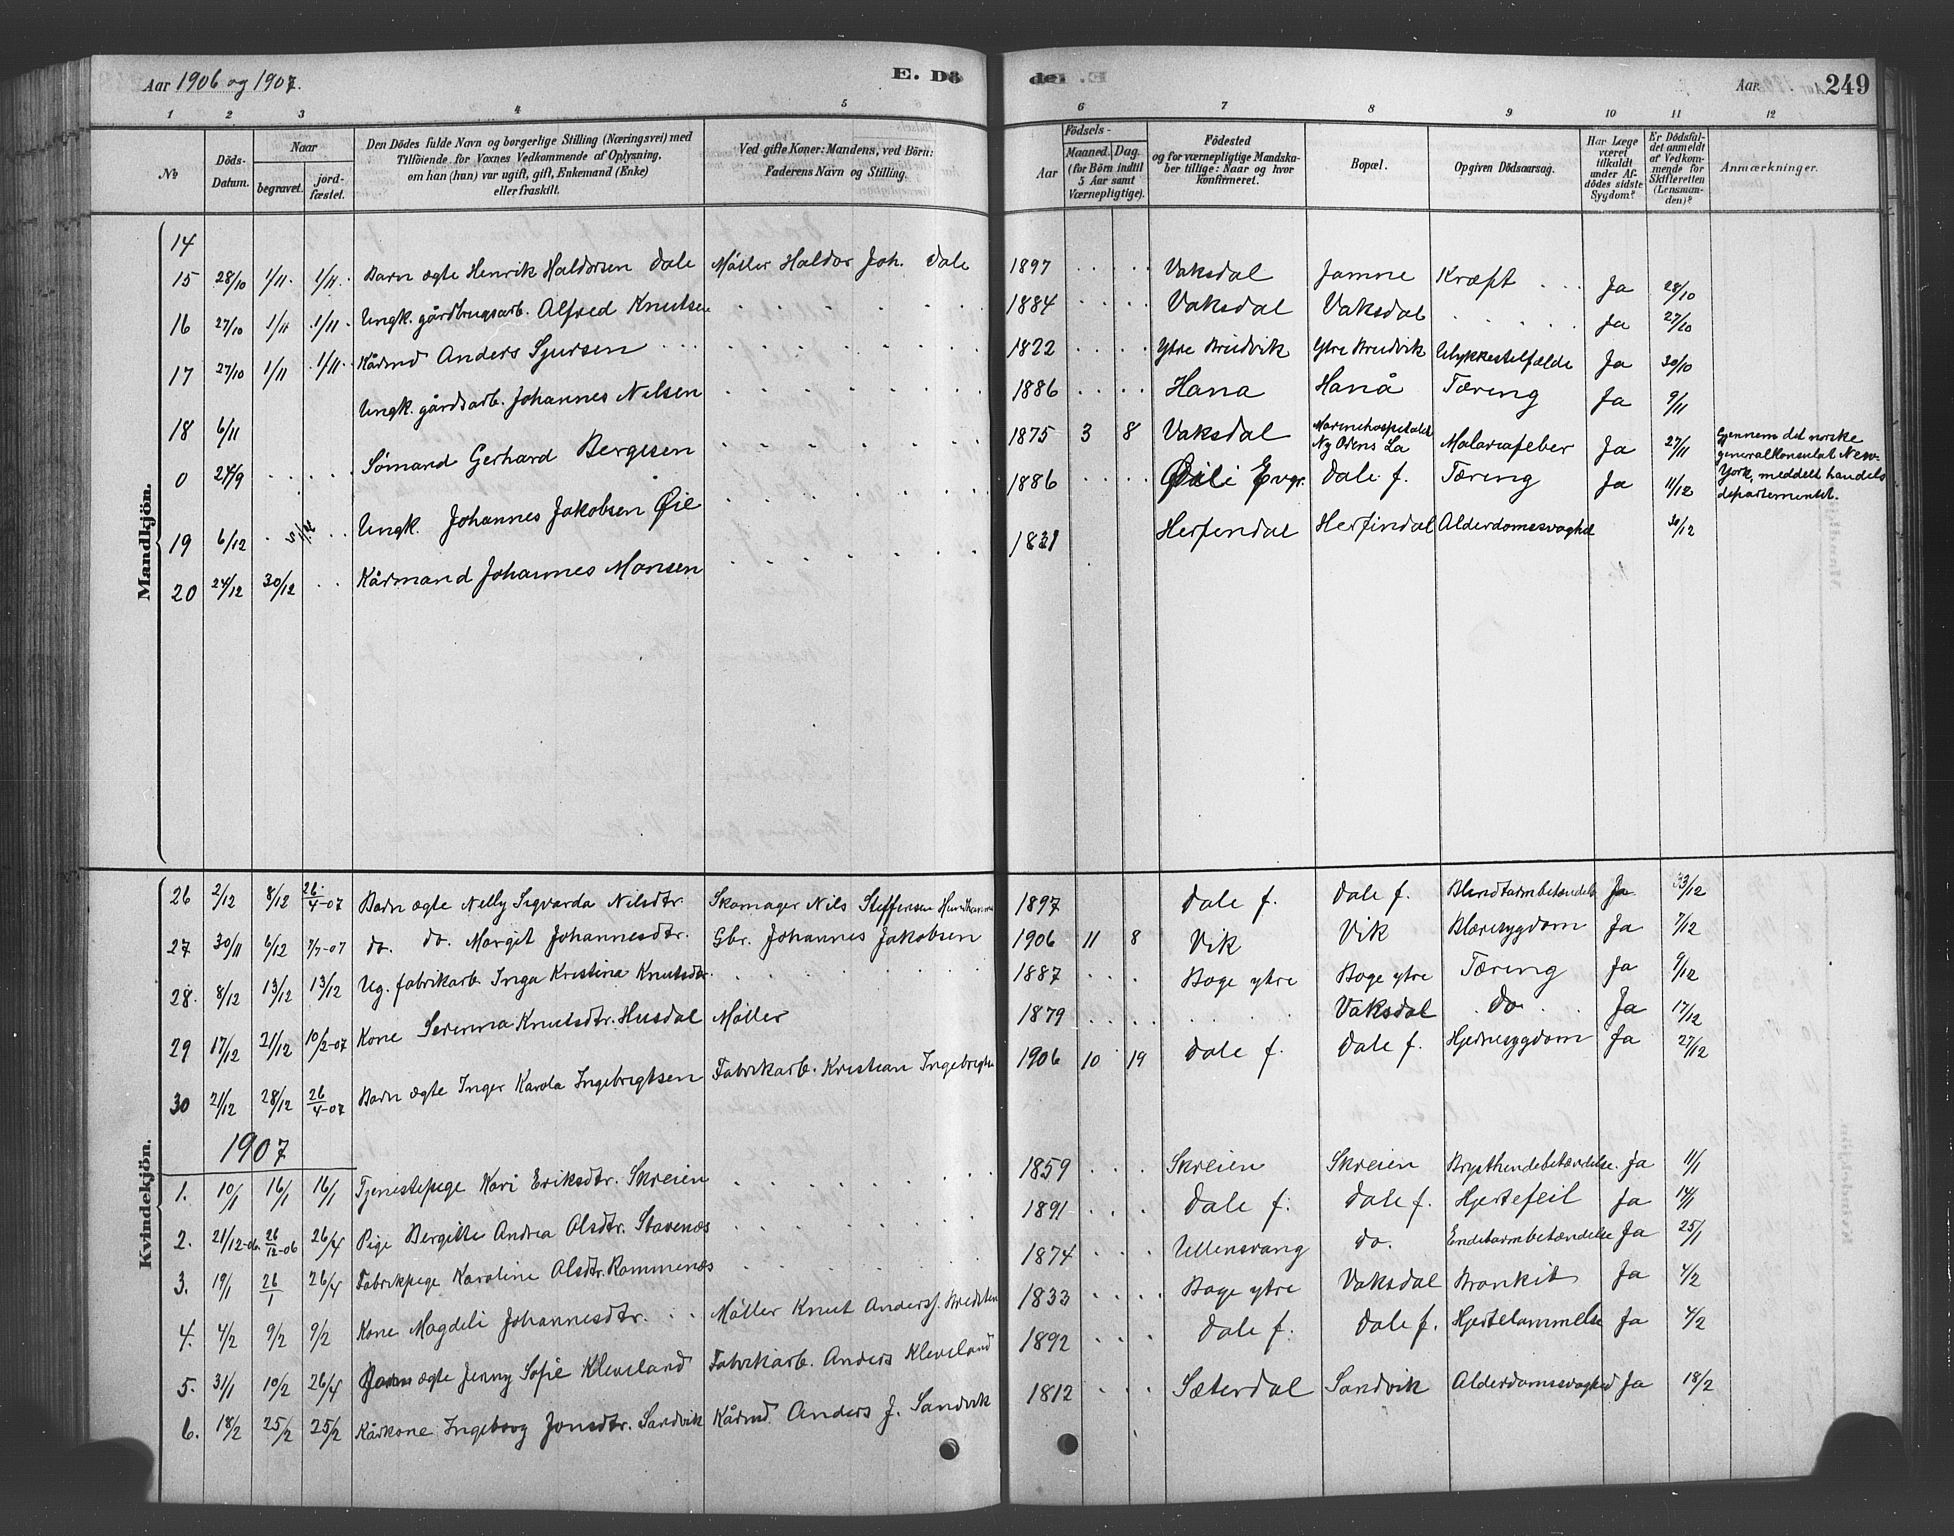 Aar 1906 og 1907.
E. Dö
del
Aar
249
1 2 3 4 5 6 7 8 9 10 11 12
№
Döds-Datum.
Naar
begravet.
jord-fæstet.
Den Dödes fulde Navn og borgerlige Stilling (Næringsvei) med
Tilföiende for Voxnes Vedkommende af Oplysning,
om han (hun) var ugift, gift, Enkemand (Enke)
eller fraskilt.
Ved gifte Koner: Mandens, ved Börn:
Faderens Navn og Stilling.
Aar
Födsels-
Maaned. Dag.
(for Börn indtil
5 Aar samt
Værnepligtige).
Födested
og for værnepligtige Mandska-
ber tillige: Naar og hvor
konfirmeret.
Bopæl.
Opgiven Dödsaarsag.
Har Læge
været
tilkaldt
under Af-
dödes sidste
Sygdom?
Er Dödsfal-
det anmeldt
af Vedkom-
mende for
Skifteretten
(Lensman-
den)?
Anmærkninger.
Mandkjön.
14
15 28/10 1/11 1/11 Barn ægte Henrik Haldorsen Dale Møller Haldor Joh. Dale 1897 Vaksdal Jamne Kræft Ja 28/10
16 27/10 1/11 1/11 Ungk. gårdbrugsarb. Alfred Knutsen 1884 Vaksdal Vaksdal Ja 27/10
17 27/10 1/11 1/11 Kårmd Anders Sjursen 1822 Ytre Bruvik Ytre Bruvik Ulykkestilfælde Ja 30/10
18 6/11 Ungk. gårdsarb. Johannes Nilsen 1886 Hana Hanå Tæring Ja 9/11
0 24/9 Sømand Gerhard Bergesen 1875 3 8 Vaksdal Marinehospitalet Ny Orens La Malariafeber Ja 27/11 Gjennem det norske
generalkonsulat New-
York, meddelt handels
departementet.
19 6/12 Ungk. Johannes Jakobsen Øie 1886 Evgr. Dale f. Tæring Ja 11/12
20 24/12 30/12 Kårmand Johannes Monsen 1831 Herfendal Herfindal Alderdomssvaghed 30/12
Kvindekjön.
26 2/12 8/12 26/4-07 Barn ægte Nelly Sigvarda Nilsdtr. Skomager Nils Steffensen 1897 Dale f. Dale f. Blindtarmbetændelse Ja 3/12
27 30/11 6/12 7/7-07 do. do. Margit Johannesdtr. Gbr. Johannes Jakobsen 1906 11 8 Vik Vik Blæresygdom Ja 7/12
28. 8/12 13/12 13/12 Ug. fabrikarb. Inga Kristina Knutsdtr. 1887 Boge ytre Boge ytre Tæring Ja 9/12
29 17/12 21/12 10/2-07 Kone Severina Knutsdtr. Husdal Møller 1879 Vaksdal Do Ja 17/12
30 21/12 28/12 26/4-07 Barn ægte Inger Karda Ingebrigtsen Fabrikarb. Kristian Ingebrigtsen 1906 10 19 Dale f. Dale f. Hjernesygdom Ja 27/12
1907
1. 10/1 16/1 16/1 Tjenestepige Kari Eriksdtr. Skreien 1859 Skreien Skreien Brysthindebetændelse. Ja 11/1
2. 21/12-06. 26/12-06 26/4 Pige Bergitte Andrea Olsdtr. Stavenæs 1891 Dale f. Dale f. Hjertefeil Ja 14/1
3. 19/1 26/1 26/4 Fabrikpige Karoline Olsdtr. Rommenæs 1874 Ullensvang Do. Endetarmbetændelse Ja 25/1
4. 4/2 9/2 9/2 Kone Magdeli Johannesdtr. Møller Knut Anders. 1833 Boge ytre Vaksdal Bronkit Ja 4/2
5. 31/1 10/2 26/4 Barn ægte Jenny Sofie Kleveland Fabrikarb. Anders Kleveland 1892 Dale f. Dale f. Hjertelammelse Ja 4/2
6. 18/2 25/2 25/2 Kårkone Ingeborg Jonsdtr. Sandvik Kårmd. Anders J. Sandvik 1812 Sæterdal Sandvik Alderdomssvaghed Ja 18/2